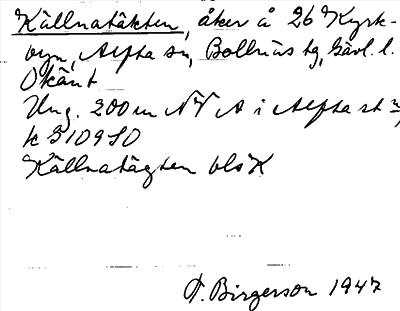 Källnatäkten, åker å 26 Kyrk-
byn, Alfta sn, Bollnäs tg, Gävl. l.
Okänt
Ung. 200 m NV A i Alfta st
k G109SO
Källnatägten bls K
T. Birgerson 1947